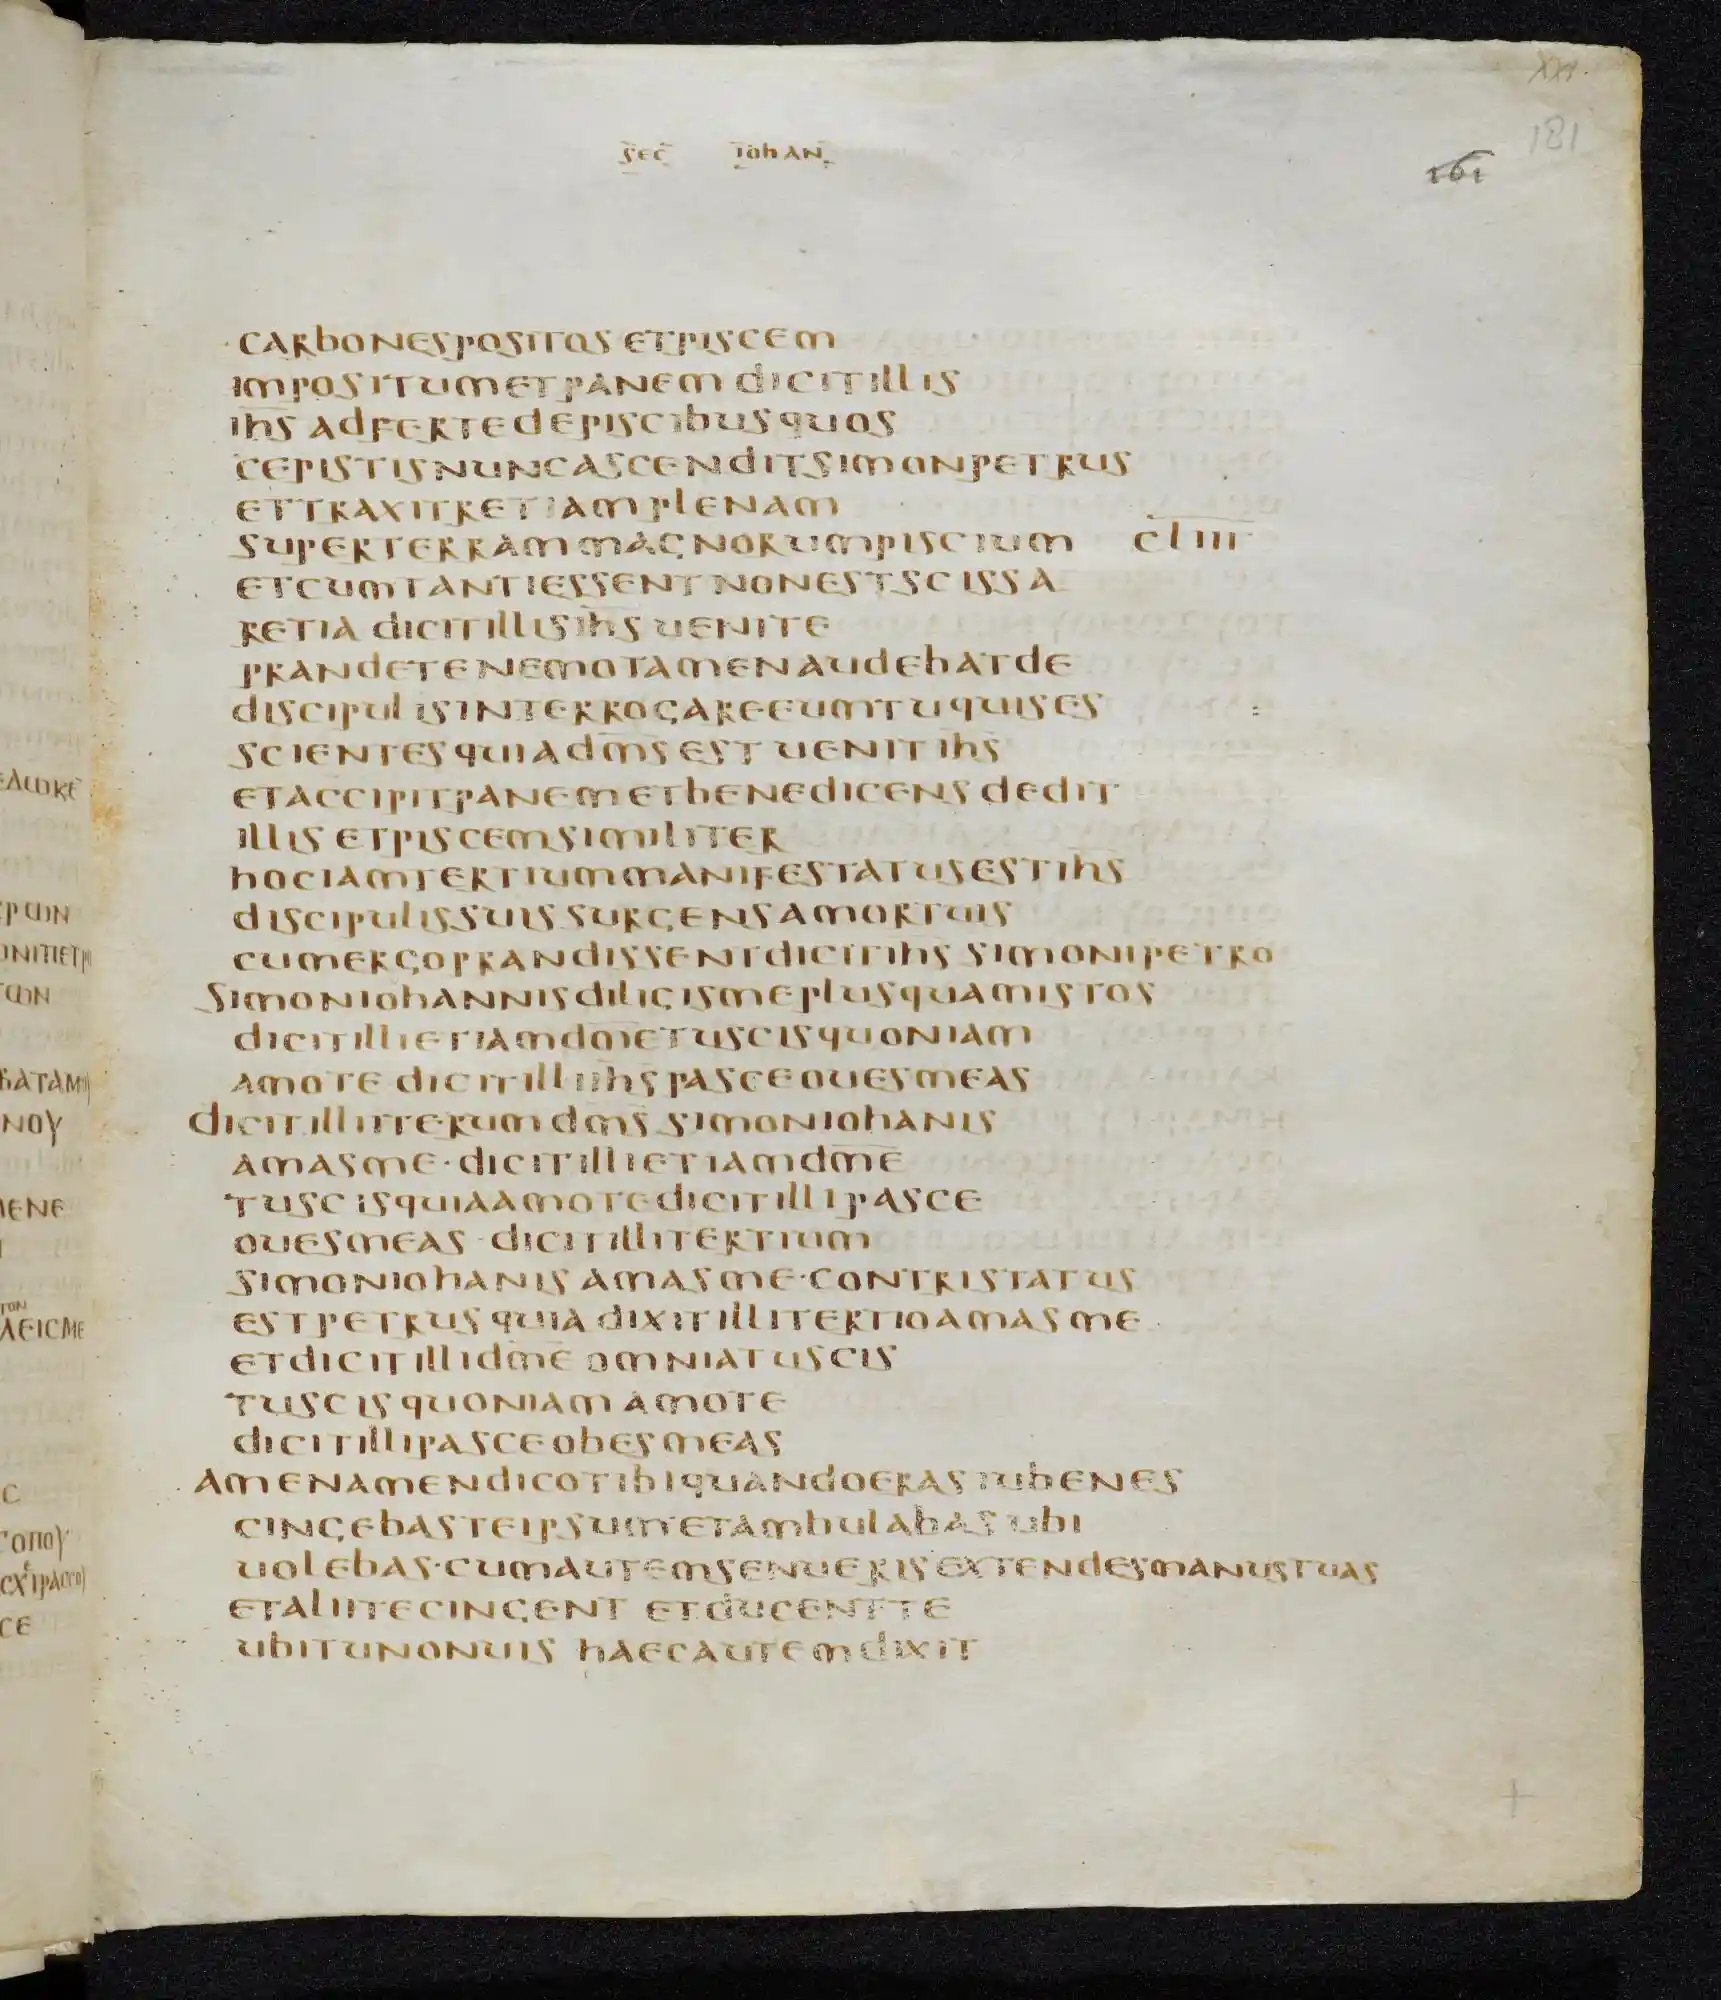 xxi.
181
161
sec̅ iohan̅
carbonespositos etpiscem
impositumetpanem dicitillis
ih̅s adfertedepiscibusquos
cepistisnuncascenditsimonpetrus
ettraxitretiamplenam
superterrammagnorumpiscium cliii
etcumtantiessent nonestscissa
retia dicitillisih̅s uenite
prandetenemotamenaudebatde
discipulisinterrogareeumtuquises
scientesquiadm̅s est uenit ih̅s
etaccipitpanemetbenedicens dedit
illis etpiscemsimiliter
hociamtertiummanifestatusestih̅s
discipulissuissurgensamortuis
cumergoprandissentdicitih̅s simonipetro
simoniohannisdiligismeplusquamistos
dicitillietiamdm̅etuscisquoniam
amote dicitilliih̅s pasceouesmeas
dicitilliiterum dm̅s simoniohanis
amasme·dicitillietiamdm̅e
tuscisquiaamotedicitillipasce
ouesmeas·dicitillitertium
simoniohanis amasme·contristatus
estpetrus quia dixitillitertioamasme
etdicitillidm̅e omniatuscis
tuscisquoniam amote
dicitillipasceobesmeas
amenamendicotibiquandoerasiubenes
cingebasteipsumetambulabas ubi
uolebas·cumautemsenuerisextendesmanustuas
etaliitecingent etducentte
ubitunonuis haecautemdixit